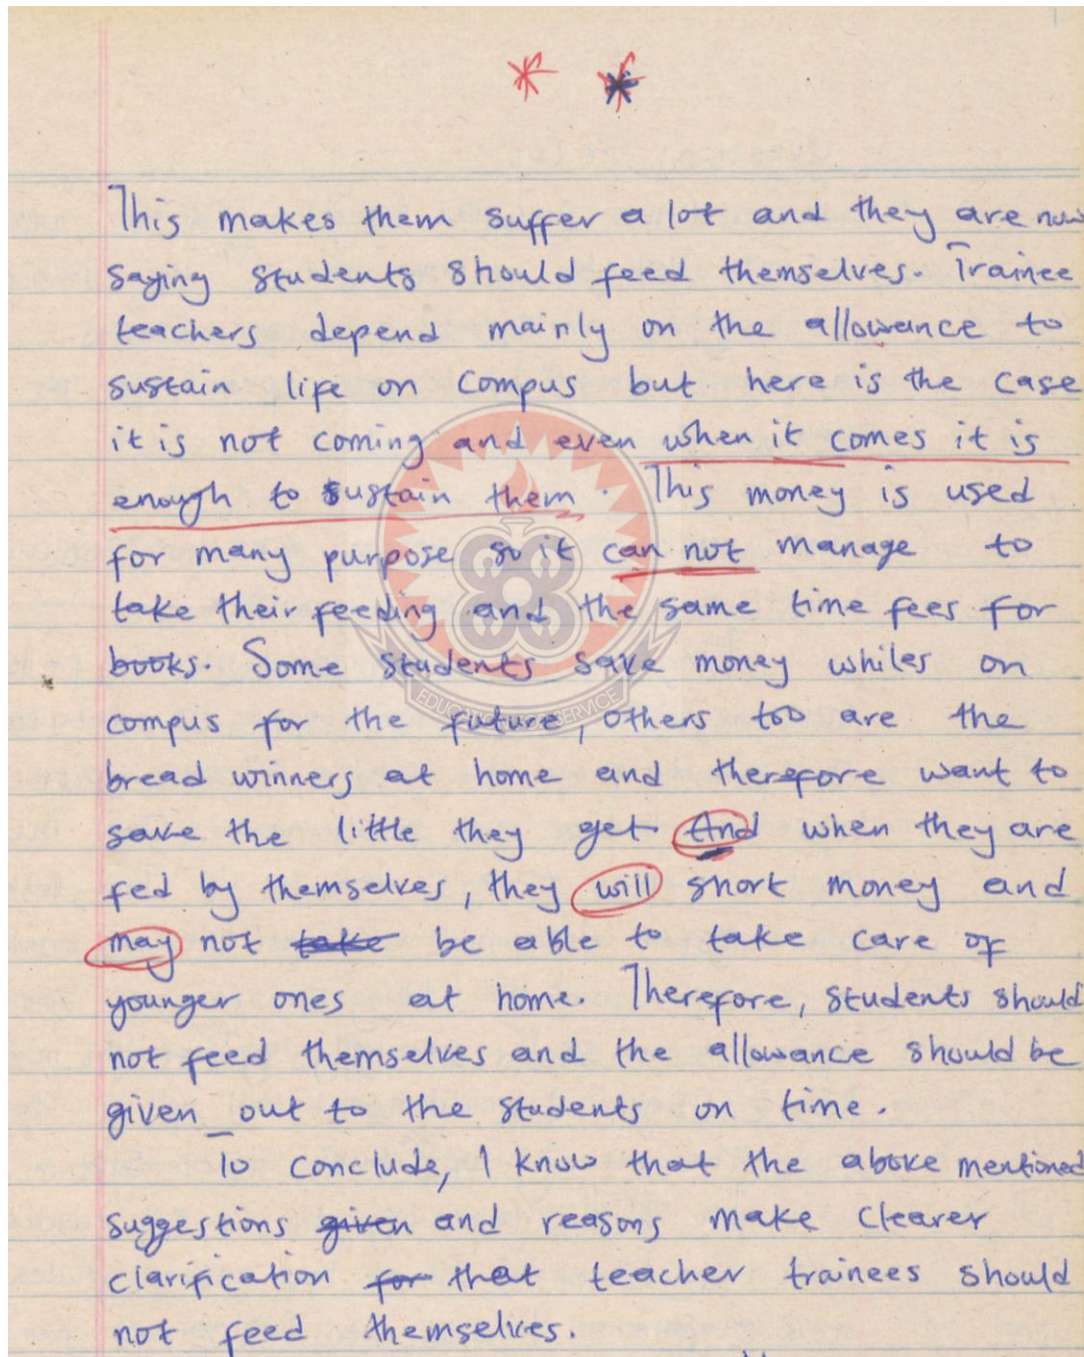 This makes them suffer a lot and they are now
saying students should feed themselves. Trainee
teachers depend mainly on the allowance to
sustain life on compus but here is the case
it is not coming and even when it comes it is
enough to sustain them. This money is used
for many purpose so it can not manage to
take their feeding and the same time fees for
books. Some students save money whiles on
compus for the future, others too are the
bread winners at home and therefore want to
save the little they get And when they are
fed by themselves, they will short money and
may not take be able to take care of
younger ones at home. Therefore, students should
not feed themselves and the allowance should be
given out to the students on time.
To conclude, I know that the above mentioned
suggestions given and reasons make clearer
clarification for that teacher trainees should
not feed themselves.